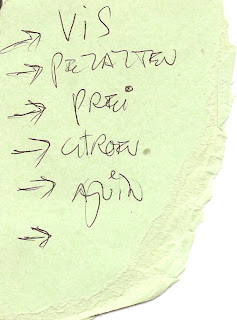 VIS
PETATTEN
PREi
CiTROEN
AJUiN